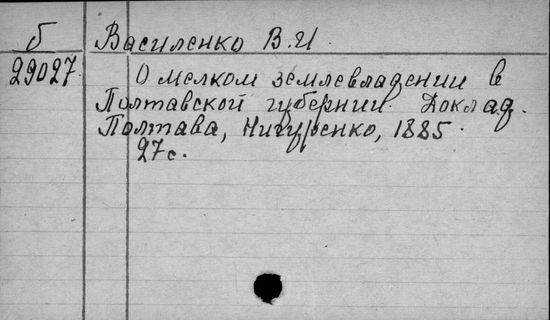 б Василенко В.И
29027 О мелком землевладении в
Полтавской губернии. Доклад.
Полтава, Нигуренко, 1885.
27 с.